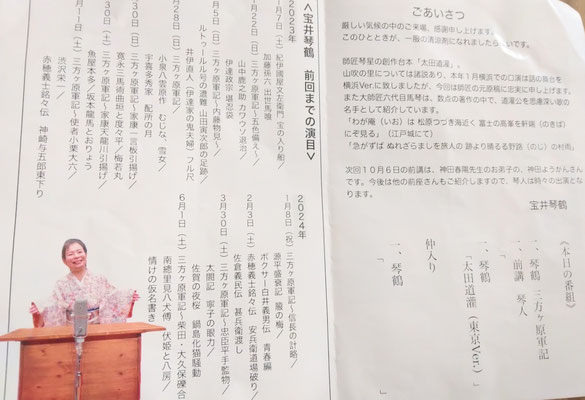 ごあいさつ
厳しい気候の中のご来場、感謝申し上げます。
このひとときが、一服の清涼剤になれましたら幸いです。
師匠琴星の創作台本「太田道灌」。
山吹の里については諸説あり、本年1月横浜での口演は謎の舞台を
横浜Ver.に致しましたが、今回は師匠の元原稿に忠実に申し上げます。
また大師匠六代目馬琴は、数点の著作の中で、道灌公を思慮深い歌の
名手として紹介しています。
「わが庵（いお）は 松原つづき海近く 富士の高峯を軒端（のきば）
にぞ見る」（江戸城にて）
「急がずば ぬれざらましを旅人の 跡より晴るる野路（のじ）の村雨」
次回１０月６日の前講は、神田春陽先生のお弟子の、神田ようかんさん
です。今後は他の前座さんもご紹介しますので、琴人は時々の出演とな
ります。
宝井琴鶴
（本日の番組）
一、前講 琴人
一、琴鶴「三方ヶ原軍記
一、琴鶴
「太田道灌（東京Ver.）」
仲入り
一、琴鶴
「
」
＜宝井琴鶴 前回までの演目＞
２０２３年
月７日（土）紀伊國屋文左衛門 宝の入り船／
加藤孫六 出世馬喰
月２２日（日）三方ヶ原軍記〜五色備え〜／
山中鹿之助 カワウソ退治／
伊達政宗 堪忍袋
月５日（日）三方ヶ原軍記〜内藤物見〜／
ルトゥールル号の遭難 山田寅次郎の足跡／
井伊直人（伊達家の鬼夫婦）フル尺
月２８日（日）三方ヶ原軍記／
小泉八雲原作 むじな、雪女／
宇喜多秀家 配所の月
月３０日（日）三方ヶ原軍記〜家康 一言板引揚げ／
寛永三馬術 曲垣と度々平／梅若丸
月３０日（土）三方ヶ原軍記〜家康天龍川引揚げ／
魚屋本多／坂本龍馬とおりょう
月１１日（土）三方ヶ原軍記〜使者小栗大六／
渋沢栄一／
赤穂義士銘々伝 神崎与五郎東下り
２０２４年
１月８日（祝）三方ヶ原軍記〜信長の計略／
源平盛衰記 扇の梅／
ボクサー白井義男伝 青春編
２月３日（土）赤穂義士銘々伝 安兵衛道場破り／
佐倉義民伝 甚兵衛渡し
３月３０日（土）三方ヶ原軍記〜忠臣平手監物／
太閤記 寧子の眼力／
佐賀の夜桜 鍋島化猫騒動
６月１日（土）三方ヶ原軍記〜柴田・大久保礫合
南總里見八犬傳 伏姫と八房／
情けの仮名書き